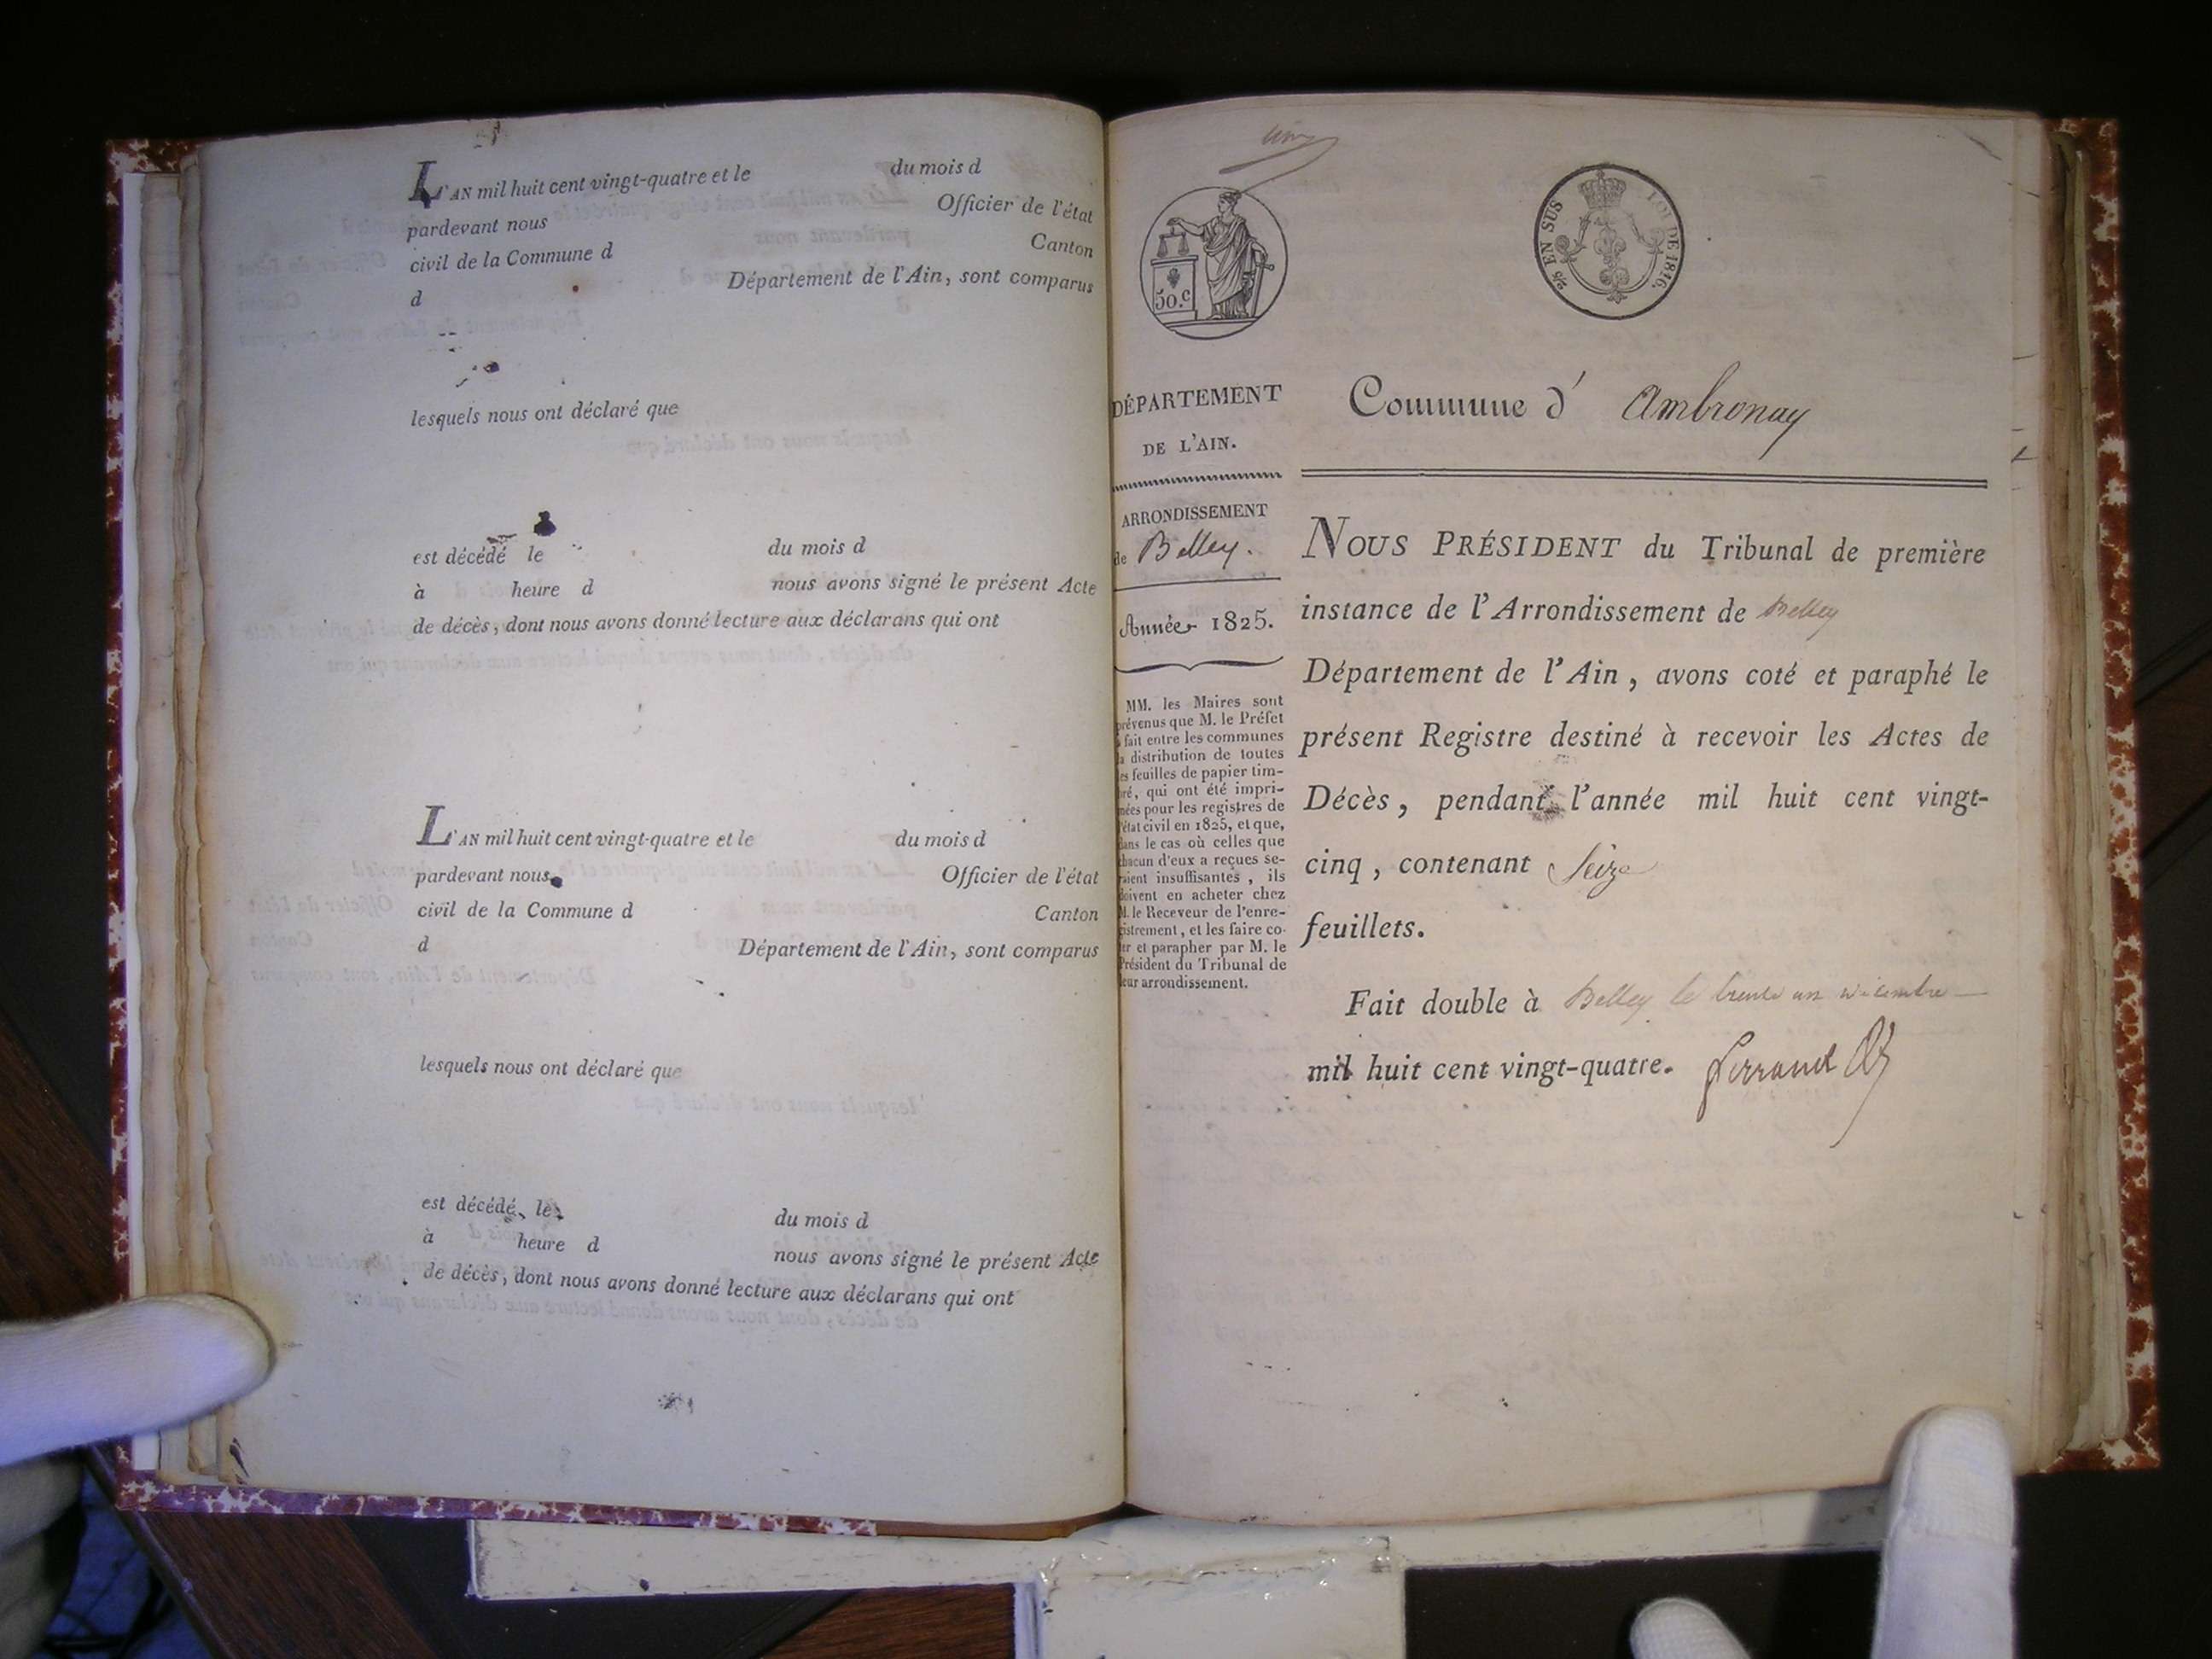 L'AN mil huit cent vingt-quatre et le du mois d
pardevant nous Officier de l'état
civil de la Commune d Canton
d Département de l'Ain, sont comparus
lesquels nous ont déclaré que
est décédé le du mois d
à heure d nous avons signé le présent Acte
de décès, dont nous avons donné lecture aux déclarans qui ont
L'AN mil huit cent vingt-quatre et le du mois d
pardevant nous Officier de l'état
civil de la Commune d Canton
d Département de l'Ain, sont comparus
lesquels nous ont déclaré que
est décédé le du mois d
à heure d nous avons signé le présent Acte
de décès, dont nous avons donné lecture aux déclarans qui ont
50.c
EN SUS LOI DE 1816.
DÉPARTEMENT
DE L'AIN.
ARRONDISSEMENT
de Belley.
Année 1825.
MM. les Maires sont
prévenus que M. le Préfet
a fait entre les communes
la distribution de toutes
les feuilles de papier tim-
bré, qui ont été impri-
mées pour les registres de
l'état civil en 1825, et que,
dans le cas où celles que
chacun d'eux a reçues se-
raient insuffisantes, ils
doivent en acheter chez
M. le Receveur de l'enre-
gistrement, et les faire co-
ter et parapher par M. le
Président du Tribunal de
leur arrondissement.
Commune d' Ambronay
NOUS PRÉSIDENT du Tribunal de première
instance de l'Arrondissement de Belley
Département de l'Ain, avons coté et paraphé le
présent Registre destiné à recevoir les Actes de
Décès, pendant l'année mil huit cent vingt-
cinq, contenant Seize
feuillets.
Fait double à Belley le trente un décembre
mil huit cent vingt-quatre. Ferrand